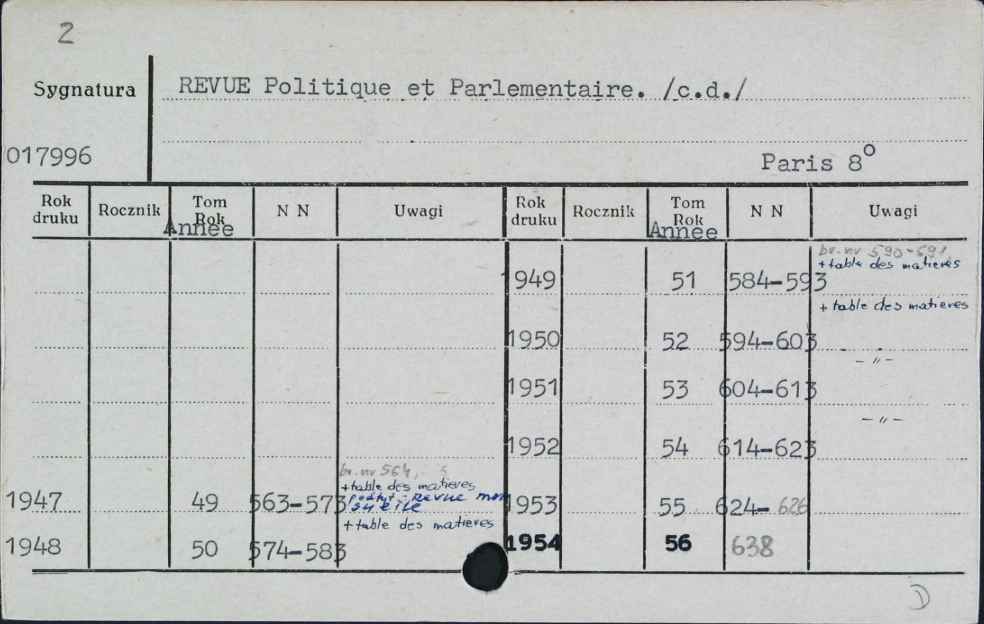 2
Sygnatura
REVUE Politique et Parlementaire. /c.d./
017996
Paris 8°
Rok druku Rocznik Tom Rok Année N N Uwagi Rok druku Rocznik Tom Rok Année N N Uwagi
br. nr 590-591
+ table des matieres
1949 51 584-593
+ table des matieres
1950 52 594-603
- " -
1951 53 604-613
- " -
1952 54 614-623
br. nr 564,
+ table des matieres
1947 49 563-573 Revue 1953 55 624- 626
+ table des matieres
1948 50 574-583 1954 56 638
D